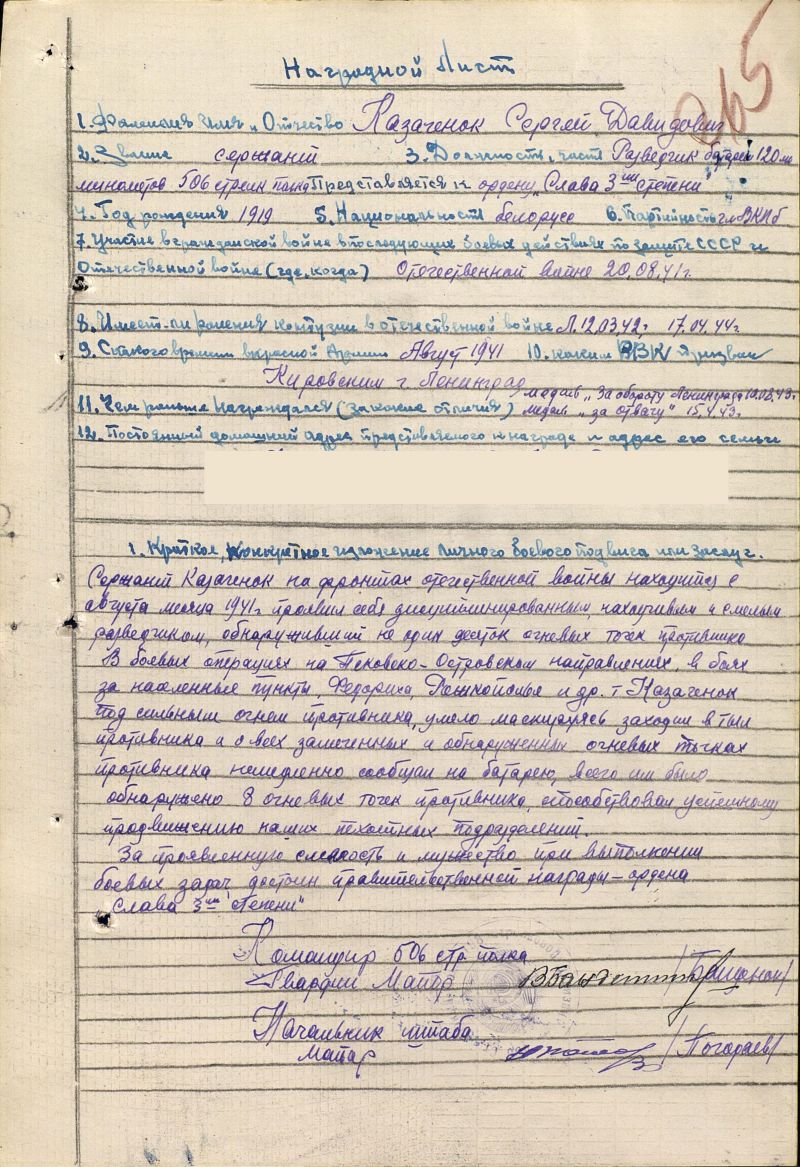 265
Наградной Лист
1. Фамилия Имя и Отчество Казаченок Сергей Давидович
2. Звание сержант 3. Должность, часть Разведчик батареи 120 мм
минометов 506 стрелк полка Представляется к ордену „Слава 3ей степени"
4. Год рождения 1919 5. Национальность белорусс 6. Партийность чл ВКПб
7. Участие в гражданской войне в последующих боевых действиях по защите СССР и
Отечественной войне (где, когда) Отечественной войне 20.08.41г.
8. Имеет-ли ранения контузии в отечественной войне Л. 12.03.42г. 17.04.44г.
9. С какого времени в красной Армии Август 1941 10. каким РВК призван
Кировским г. Ленинград
медаль „За оборону Ленинграда
11. Чем раньше награждался (за какие отличия) медаль „за отвагу" 15.4.43г.
12. Постоянный домашний адрес представляемого к награде и адрес его семьи
1. Краткое, конкретное изложение личного боевого подвига или заслуг.
Сержант Казаченок на фронтах отечественной войны находится с
августа месяца 1941г. проявил себя дисциплинированным, находчивым и смелым
разведчиком, обнаруживший не один десяток огневых точек противника
В боевых операциях на Псковско-Островском направлениях, в боях
за населенные пункты, Федориха и др. т. Казаченок
под сильным огнем противника, умело маскируясь заходил в тыл
противника и о всех замеченных и обнаруженных огневых точках
противника немедленно сообщал на батарею, всего им было
обнаружено 8 огневых точек противника, способствовал успешному
продвижению наших пехотных подразделений.
За проявленную смелость и мужество при выполнении
боевых задач достоин правительственной награды – ордена
„Слава 3ей степени"
Командир 506 стр полка
Гвардии Майор
Начальник штаба
Майор